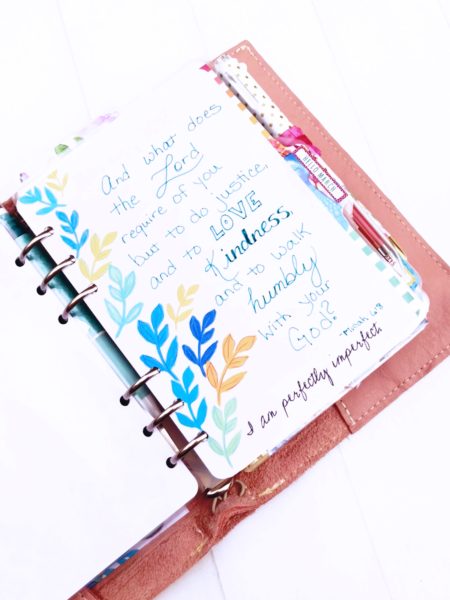 And what does
the Lord
require of you
but to do justice,
and to LOVE
Kindness,
and to walk
humbly
with your
God?
-Micah 6:8
I am perfectly imperfect
HELLO MARCH